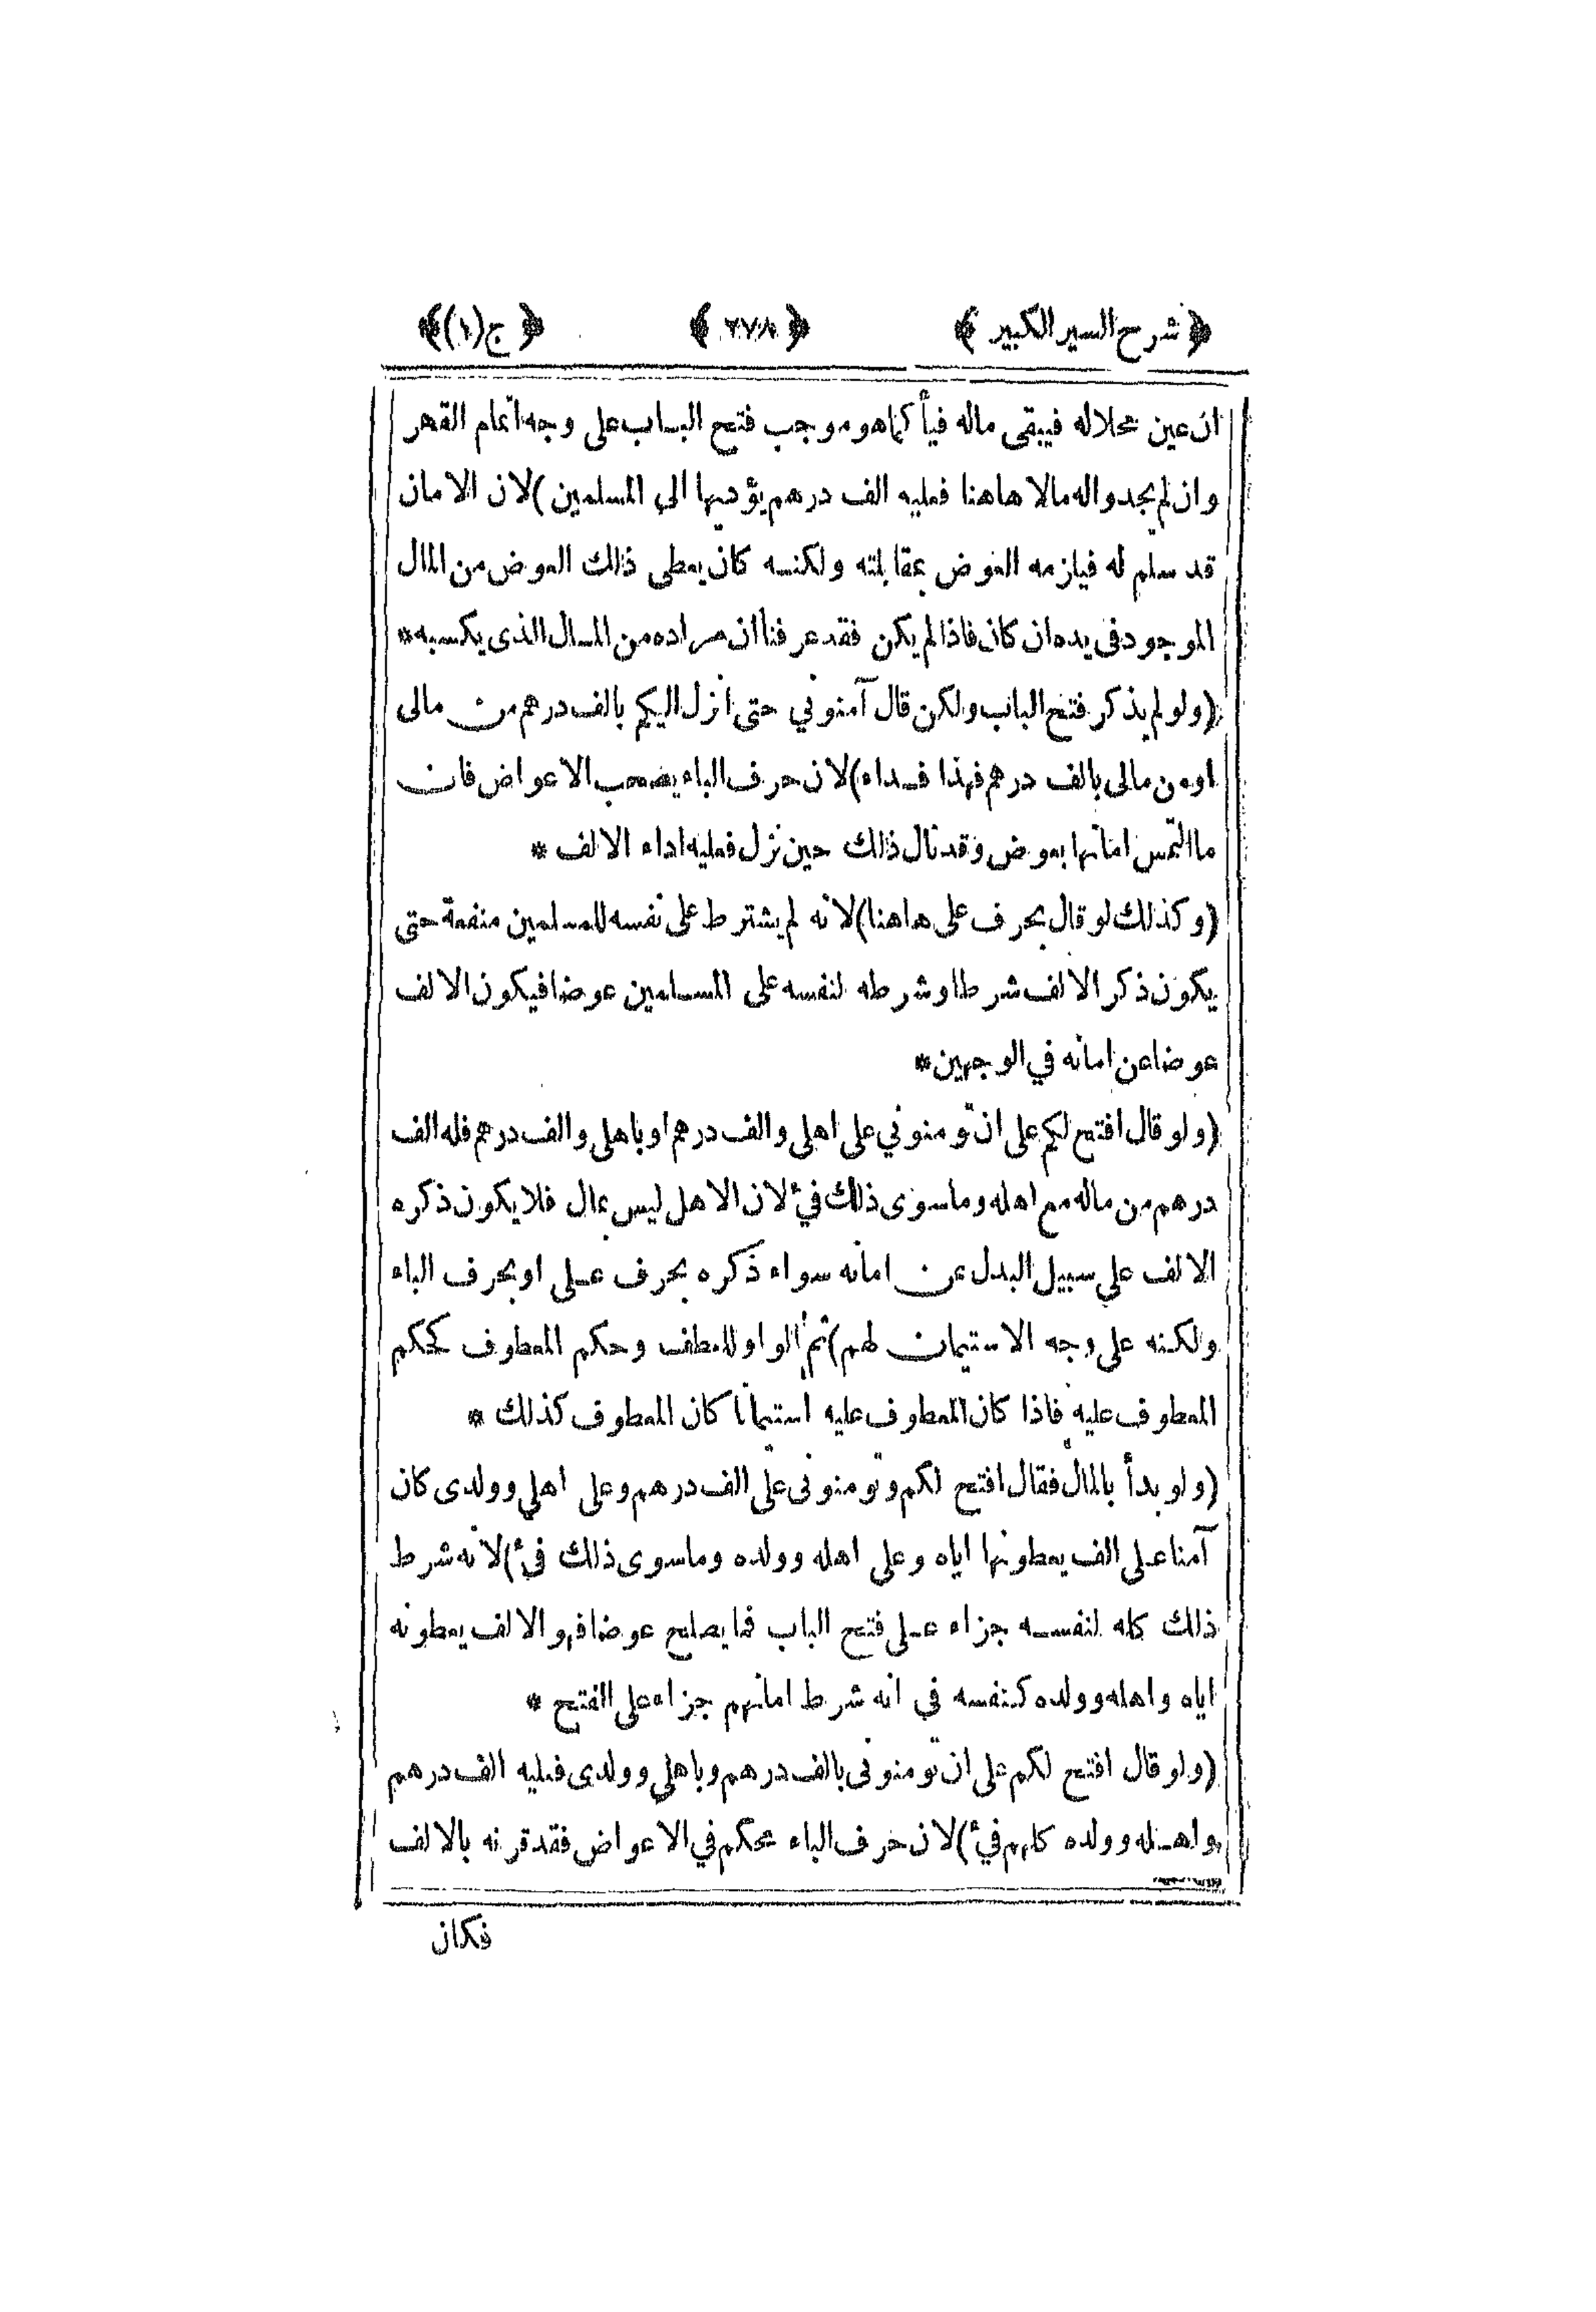 ﴿ شرح السير الكبير ﴾ ﴿ ٢٧٨ ﴾ ﴿ ج (١) ﴾
ان عين محلاله فيبقى ماله فيأ كما هو موجب فتح الباب على وجه اتمام القهر
وان لم يجدوا له مالا هاهنا فعليه الف درهم يؤديها الى المسلمين) لان الامان
قد سلم له فيلزمه العوض بمقابلته ولكنه كان يعطى ذلك العوض من المال
الموجود في يده ان كان فاذا لم يكن فقد عرفنا ان مراده من المال الذى يكسبه *
(ولو لم يذكر فتح الباب ولكن قال آمنوني حتى انزل اليكم بالف درهم من مالى
او من مالى بالف درهم فهذا فداء) لان حرف الباء يصحب الاعواض فان
ما التمس امانها بعوض وقد نال ذلك حين نزل فعليه اداء الالف *
(وكذلك لو قال بحرف على هاهنا) لانه لم يشترط على نفسه للمسلمين منفعة حتى
يكون ذكر الالف شرطا وشرطه لنفسه على المسلمين عوضا فيكون الالف
عوضا عن امانه في الوجهين *
(ولو قال افتح لكم على ان تومنوني على اهلى والف درهم او باهلى والف درهم فله الف
درهم من ماله مع اهله وما سوى ذلك فيء لان الاهل ليس بمال فلا يكون ذكره
الالف على سبيل البدل عن امانه سواء ذكره بحرف على او بحرف الباء
ولكنه على وجه الاستيمان لهم) ثم الواو للعطف وحكم المعطوف كحكم
المعطوف عليه فاذا كان المعطوف عليه استيمانا كان المعطوف كذلك *
(ولو بدأ بالمال فقال افتح لكم وتومنونى على الف درهم وعلى اهلي وولدى كان
آمنا على الف يعطونها اياه وعلى اهله وولده وما سوى ذلك فيء) لانه شرط
ذلك كله لنفسه جزاء على فتح الباب فما يصلح عوضا فهو الالف يعطونه
اياه واهله وولده كنفسه في انه شرط امانهم جزاء على الفتح *
(ولو قال افتح لكم على ان تومنونى بالف درهم وباهلي وولدى فعليه الف درهم
واهله وولده كلهم فيء) لان حرف الباء محكم في الاعواض فقد قرنه بالالف
فكان